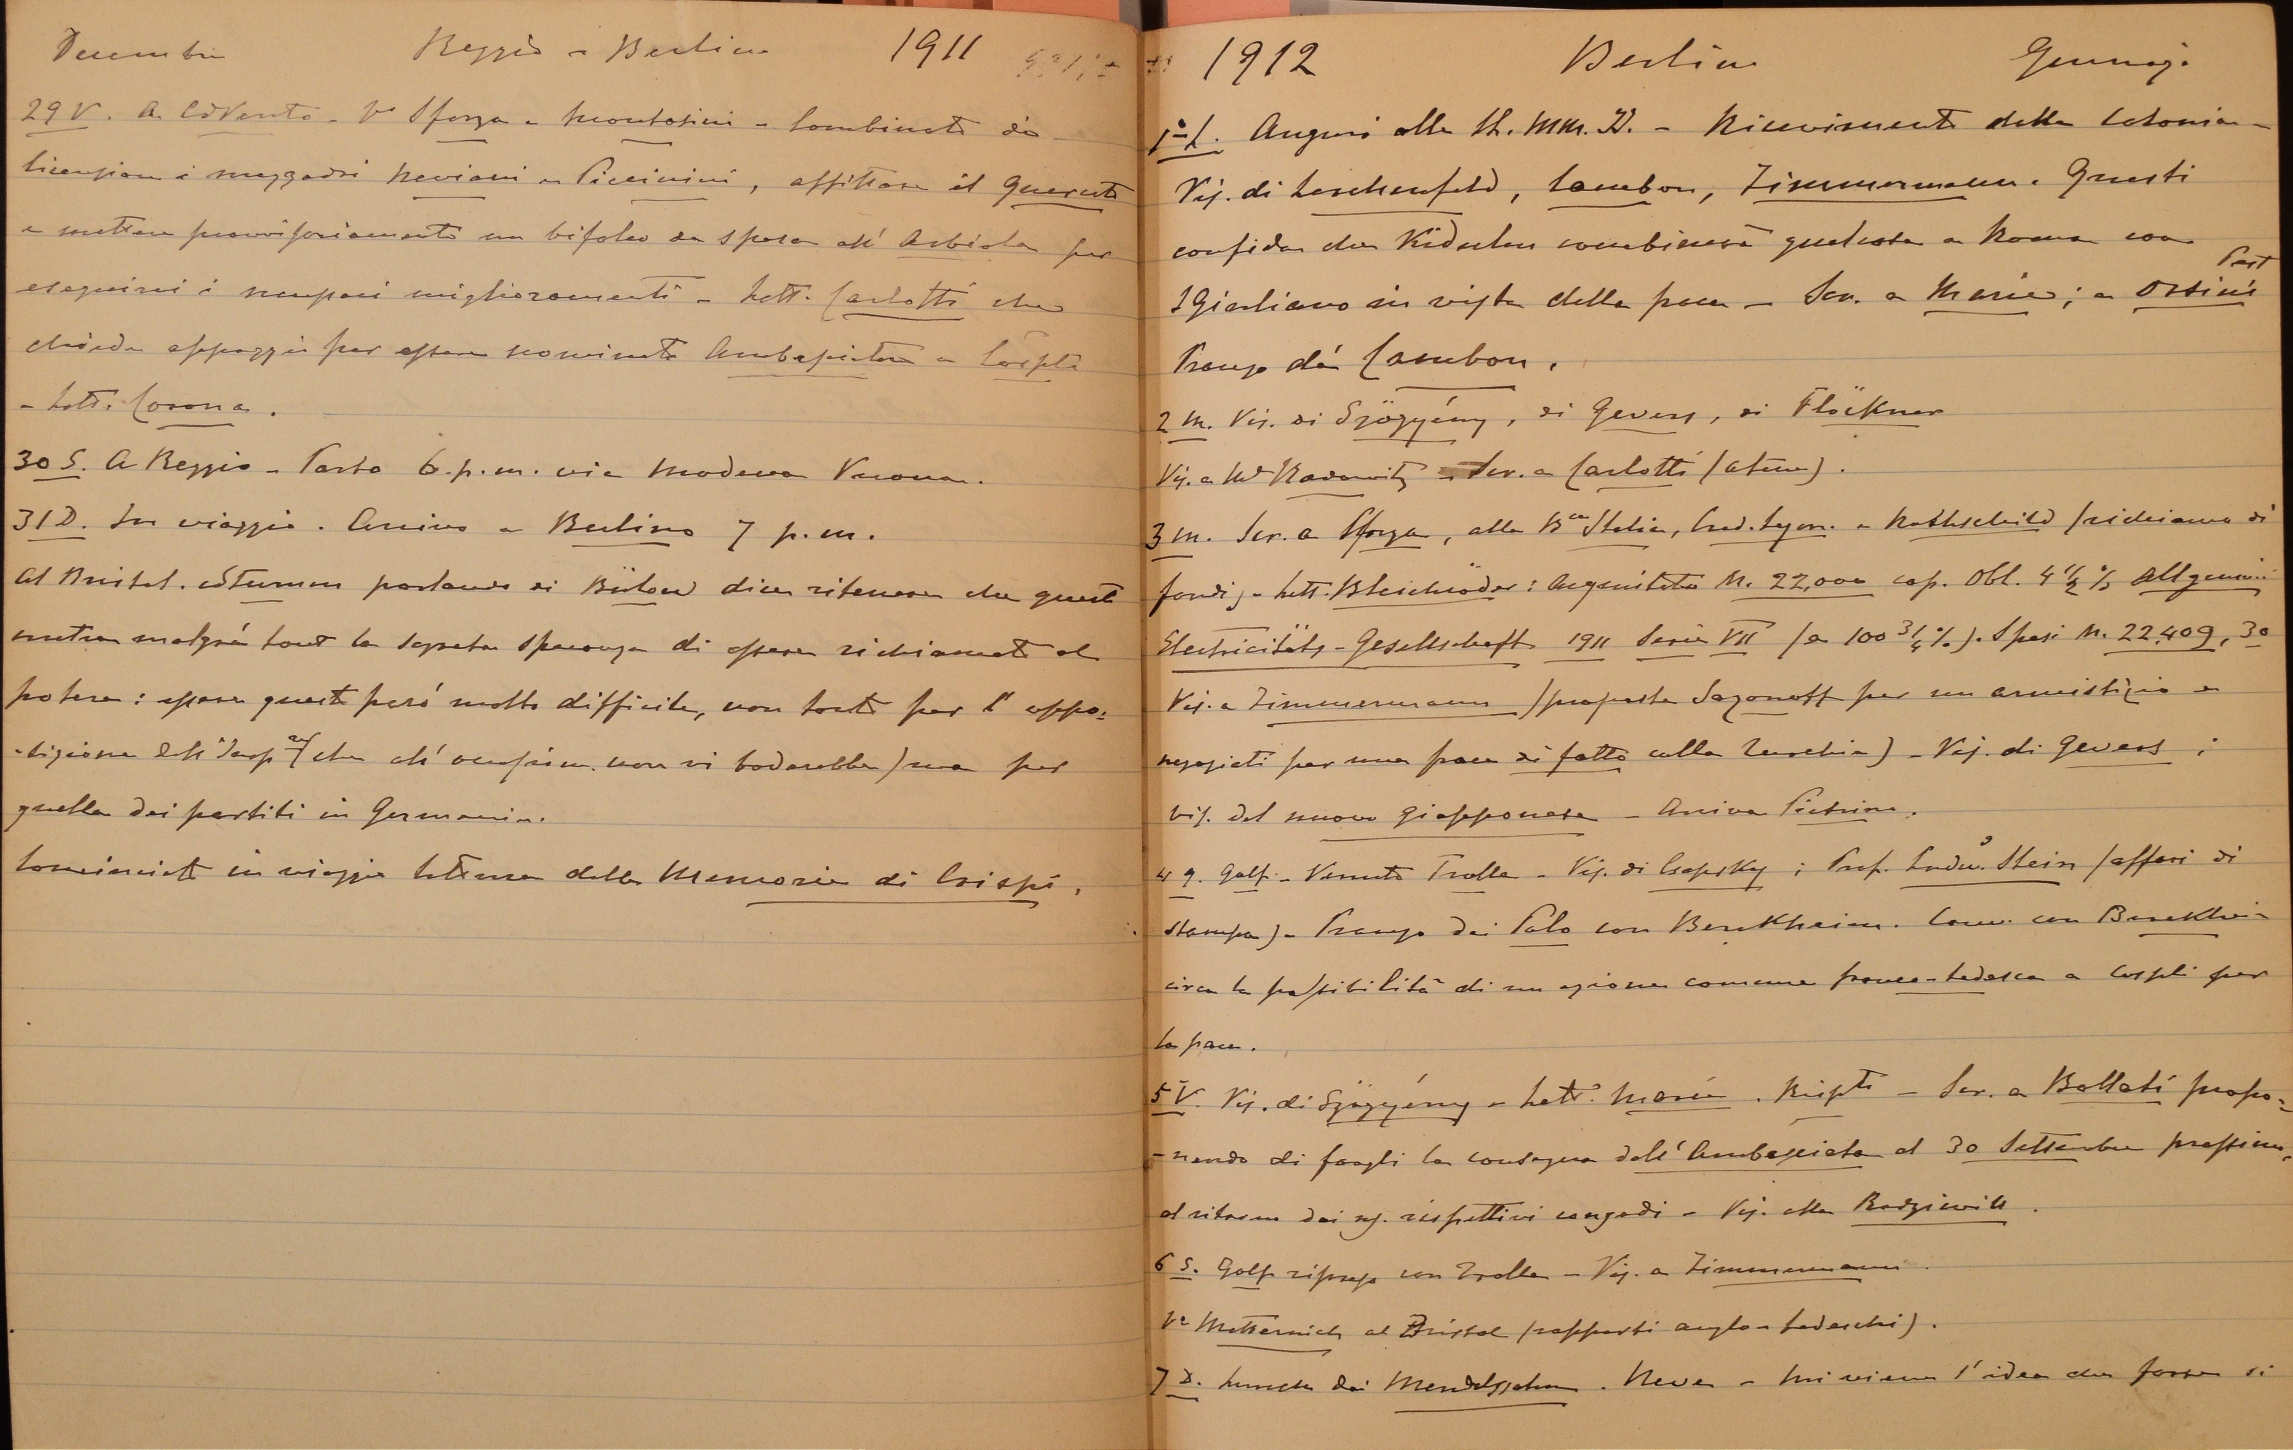 Decembre Reggio - Berlino 1911
29 V. A Cdvento - Vo Sforza e Montosini - Combinato di
licenziare i mezzadri Neviani e Piccinini, affittare il Querceto
e mettere provvisoriamente un bifolco da spesa all' Arbiola per
eseguirvi i necessari miglioramenti - Lett. Carlotti che
chiede appoggio per essere nominato Ambasciatore a Cospli
- Lett. Corona.
30 S. A Reggio - Parto 6. p. m. via Modena Verona.
31 D. In viaggio. Arrivo a Berlino 7 p. m.
Al Bristol. Stumm parlando di Bülow dice ritenere che questi
nutra malgré tout la segreta speranza di essere richiamato al
potere: essere questo però molto difficile, non tanto per l' oppo=
-sizione dell' Imp (che all' occasione non vi baderebbe) ma per
quella dei partiti in Germania.
Cominciato in viaggio lettura delle Memorie di Crispi.
1912 Berlino Gennajo
1° L. Auguri alle LL. MM. II. - Ricevimento della Colonia -
Vis. di Lerchenfeld, Cambon, Zimmermann. Questi
confida che Kiderlen combinerà qualcosa a Roma con
S Giuliano in vista della pace - Scr. a Maria; a Orsini Past
Pranzo dai Cambon.
2 M. Vis. di Szögyény, di Gevers, di Flöckner
Vis. a Md Radowitz - Scr. a Carlotti (Atene).
3 M. Scr. a Sforza, alla Bca Italia, Cred. Lyon. e Rothschild (richiamo di
fondi) - Lett. Bleichröder: Acquistato M. 22,000 cap. Obl. 4 1/2 % Allgemeine
Electricitäts-Gesellschaft 1911 Serie VII (a 100 3/4 %). Spesi M. 22.409,30
Vis. a Zimmermann (proposta Sazonoff per un armistizio e
negoziati per una pace di fatto colla Turchia) - Vis. di Gevers;
vis. del nuovo Giapponese - Arriva Pietrino.
4 G. Golf - Venuto Trolle - Vis. di Czapsky; Prof. Ludw. Stein (affari di
stampa) - Pranzo dai Polo con Berckheim. Conv. con Berckheim
circa la possibilità di un azione comune franco-tedesca a Cospli per
la pace.
5 V. Vis. di Szögyény - Lett. Maria. Rispto - Scr. a Bollati propo=
-nendo di fargli la consegna dell' Ambasciata al 30 Settembre prossimo,
al ritorno dai ns. rispettivi congedi - Vis. alla Radziwill.
6 S. Golf ripreso con Trolle - Vis. a Zimmermann
Vo Metternich al Bristol (rapporti anglo-tedeschi).
7 D. Lunch dai Mendelssohn. Neve - Mi viene l' idea che forse si